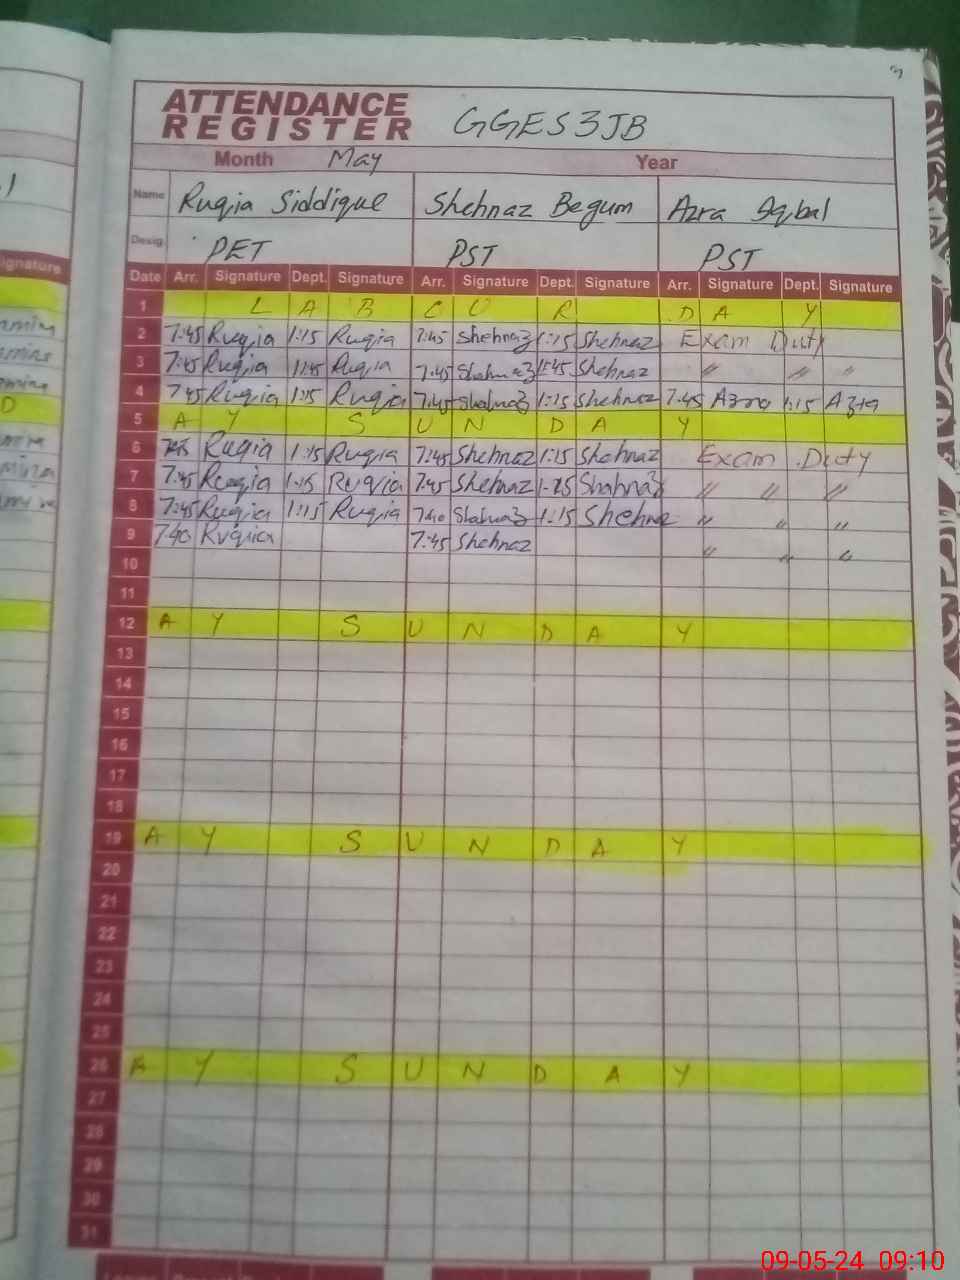 ATTENDANCE
REGISTER GGES3JB
Month May Year
Name Ruqia Siddique Shehnaz Begum Azra Iqbal
Desig. PET PST PST
Date Arr. Signature Dept. Signature Arr. Signature Dept. Signature Arr. Signature Dept. Signature
1 L A B O U R D A Y
2 7:45 Ruqia 1:15 Ruqia 7:45 Shehnaz 1:15 Shehnaz Exam Duty
3 7:45 Ruqia 11:45 Ruqia 7:45 Shehnaz 11:45 Shehnaz " " "
4 7:45 Ruqia 1:15 Ruqia 7:45 Shehnaz 1:15 Shehnaz 7:45 Azra 1:15 Azra
5 A Y S U N D A Y
6 Ruqia 1:15 Ruqia 7:45 Shehnaz 1:15 Shehnaz Exam Duty
7 7:45 Ruqia 1:15 Ruqia 7:45 Shehnaz 1:15 Shahnaz " " "
8 7:45 Ruqia 1:15 Ruqia 7:40 Shahnaz 1:15 Shehnaz " " "
9 7:40 Ruqia 7:45 Shehnaz " " "
10
11
12 A Y S U N D A Y
13
14
15
16
17
18
19 A Y S U N D A Y
20
21
22
23
24
25
26 A Y S U N D A Y
27
28
29
30
31
09-05-24 09:10